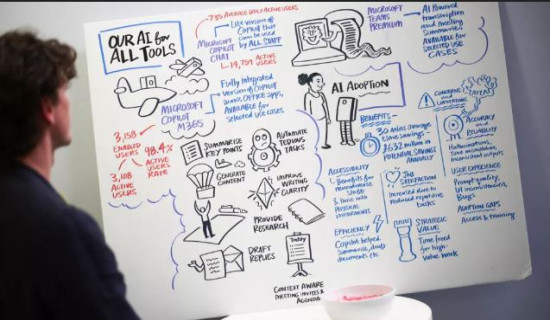 OUR AI for
ALL TOOLS
MICROSOFT
COPILOT
CHAT
Lite version of
Copilot that
can be used
by ALL STAFF
19,759 ACTIVE
USERS
MICROSOFT
TEAMS
PREMIUM
AI Powered
transcription
and meeting
Summaries
AVAILABLE for
Selected USE
CASES
MICROSOFT
COPILOT
M365
Fully integrated
version of Copilot
across OFFICE apps,
AVAILABLE for
Selected use cases
3,158
ENABLED
USERS
98.4%
ACTIVE
USERS
RATE
3,108
ACTIVE
USERS
SUMMARISE
KEY POINTS
AUTOMATE
TEDIOUS
TASKS
GENERATE
CONTENT
IMPROVE
WRITING
CLARITY
PROVIDE
RESEARCH
DRAFT
REPLIES
Today
CONTEXT AWARE
MEETING INVITES &
AGENDA
AI ADOPTION
BENEFITS
savings
million
POTENTIAL
SAVINGS
ANNUALLY
ACCESSIBILITY
Benefits for
neurodiverse
Staff
& those with
PHYSICAL
IMPAIRMENTS
JOB
SATISFACTION
Increased due to
Reduced repetitive
tasks
EFFICIENCY
Copilot helped
Summarise, draft
documents etc
STRATEGIC
VALUE
Time freed
for high
Value work
CONCERNS
and
LIMITATIONS
ACCURACY
&
RELIABILITY
Hallucinations,
inconsistent outputs
USER EXPERIENCE
Prompt quality,
UI inconsistencies,
Bugs
ADOPTION GAPS
Access & training